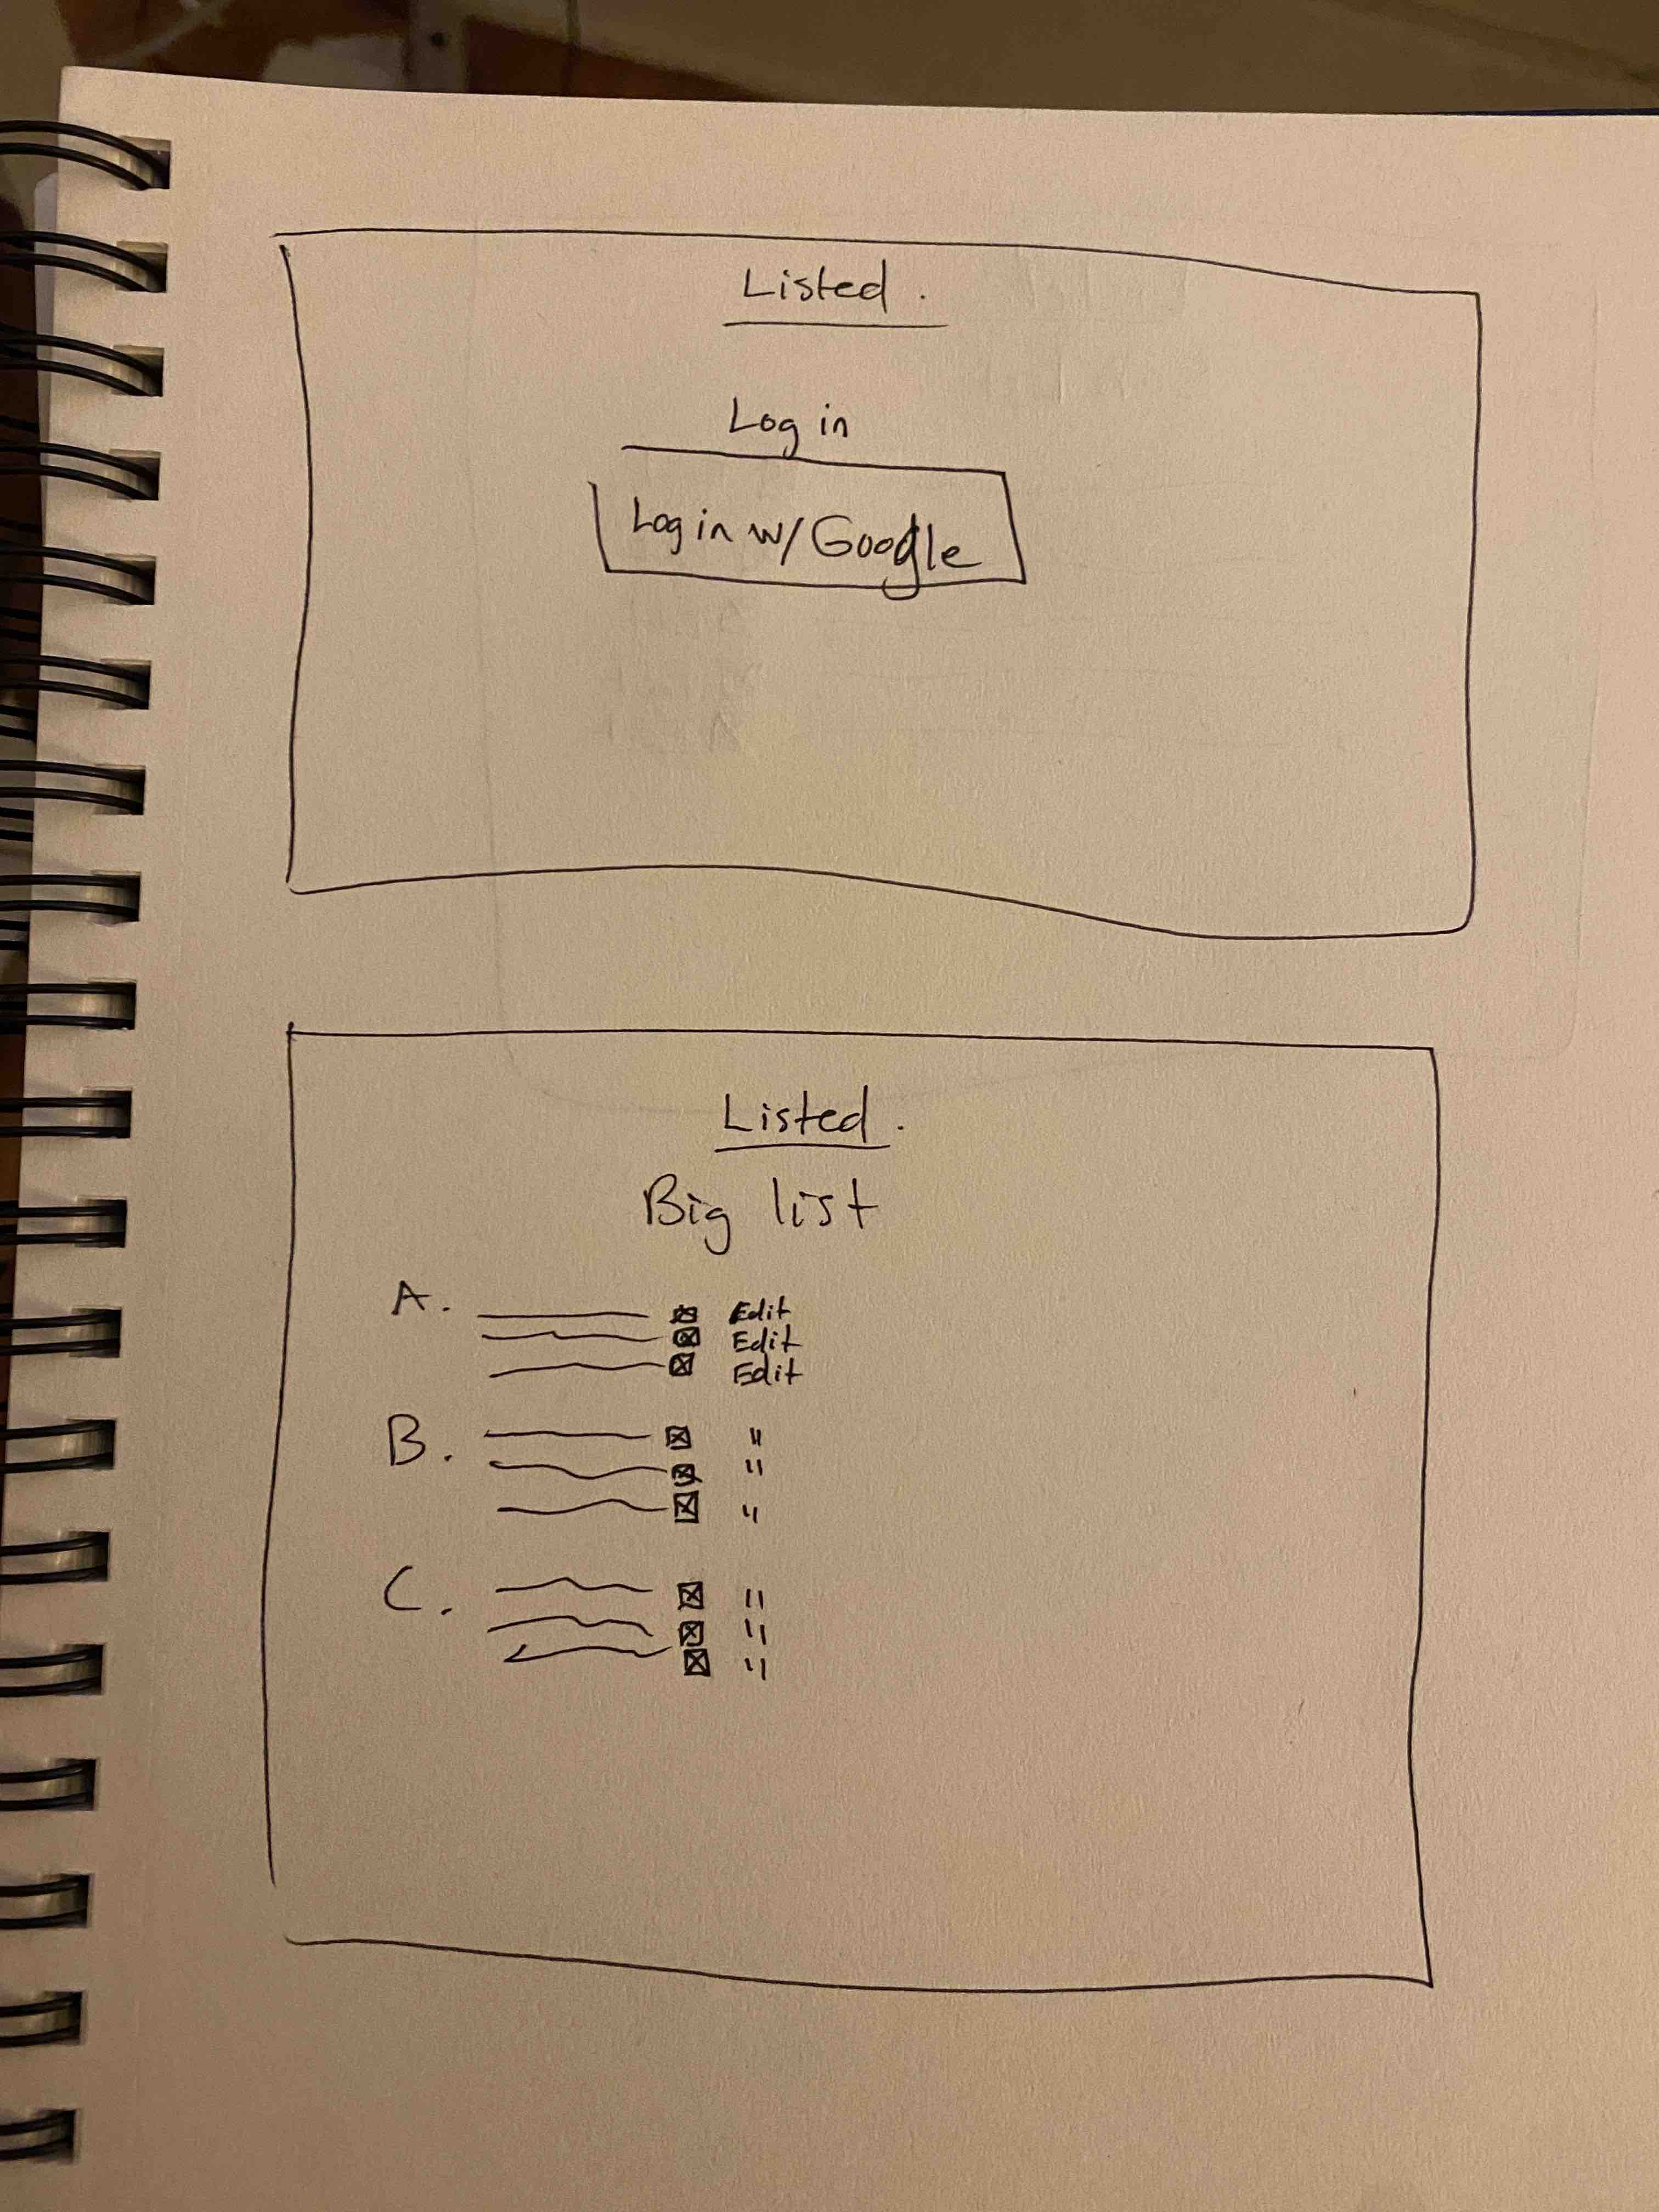 Listed.
Log in
Log in w/ Google
Listed.
Big list
A. Edit
Edit
Edit
B. "
"
"
C. "
"
"